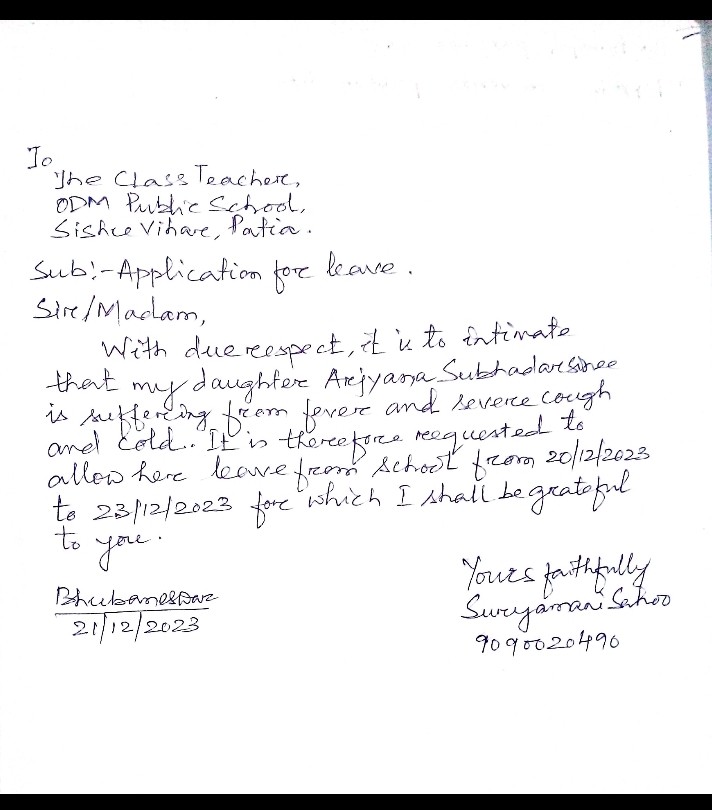 To
The Class Teacher,
ODM Public School,
Sishu Vihar, Patia.
Sub:- Application for leave.
Sir/Madam,
With due respect, it is to intimate
that my daughter Arjyana Subhadarsinee
is suffering from fever and severe cough
and cold. It is therefore requested to
allow her leave from school from 20/12/2023
to 23/12/2023 for which I shall be grateful
to you.
Yours faithfully
Bhubaneswar
Suryamani Sahoo
21/12/2023
9090020490